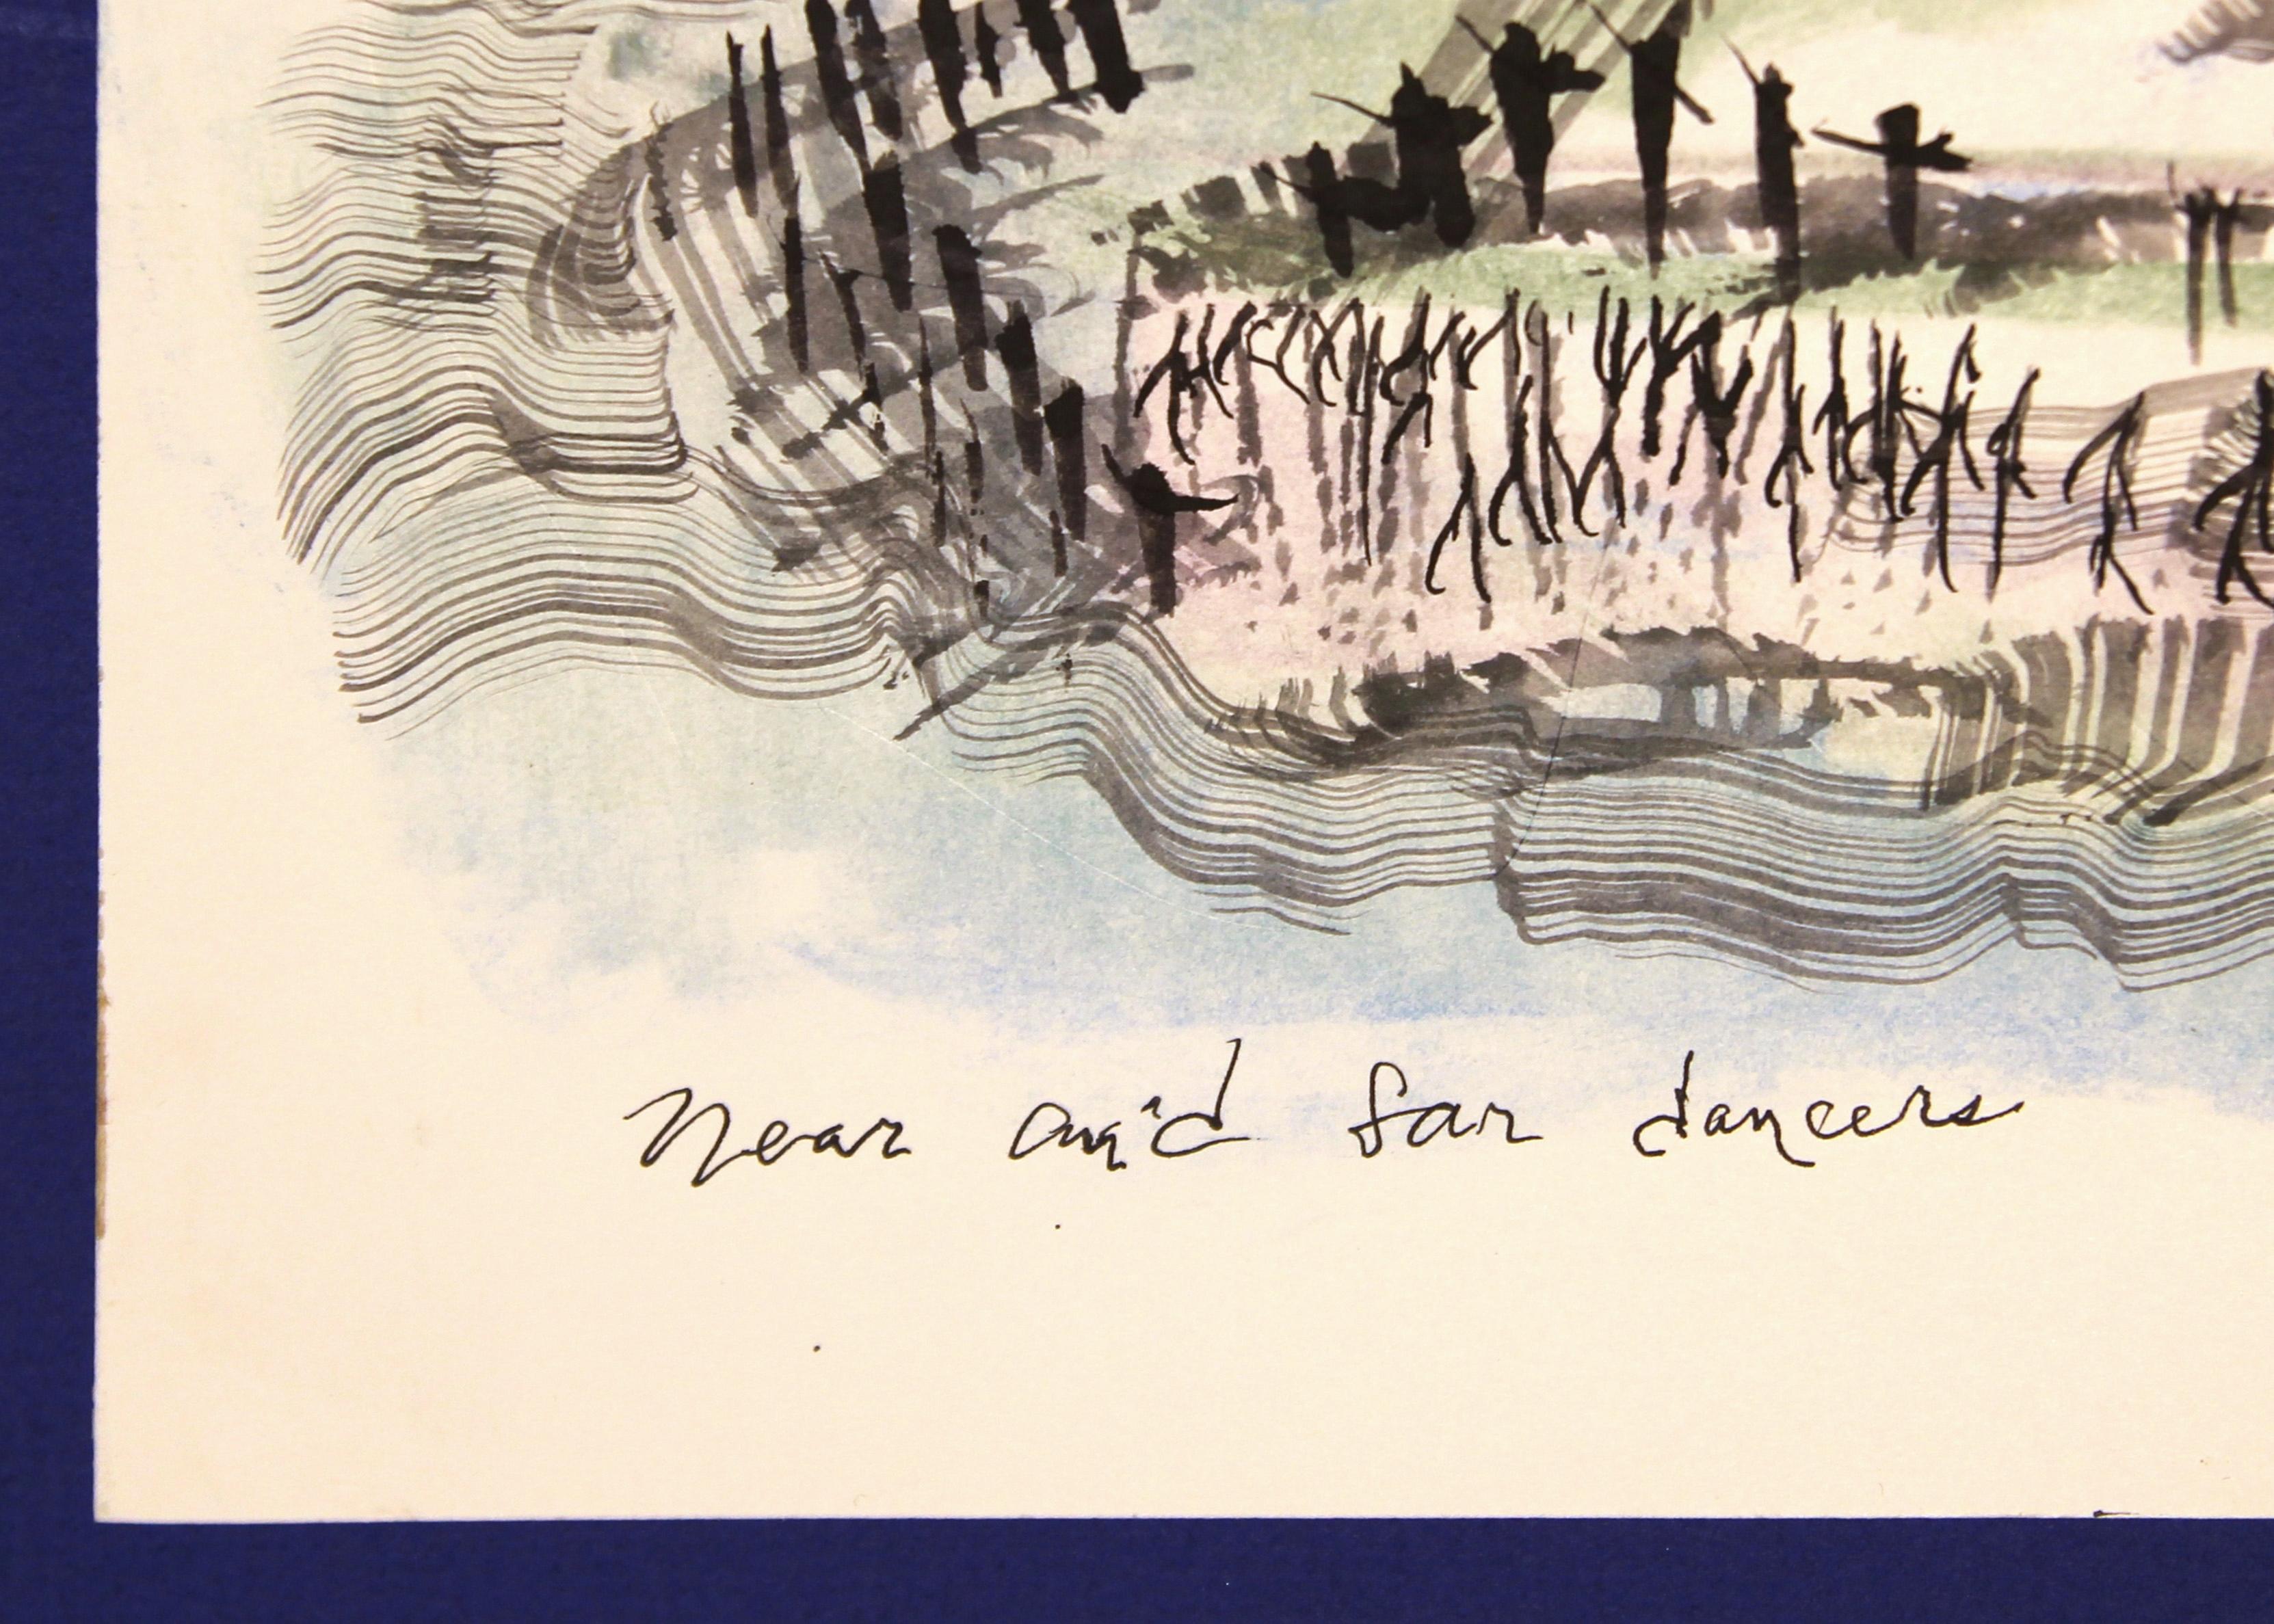 Near and far dancers